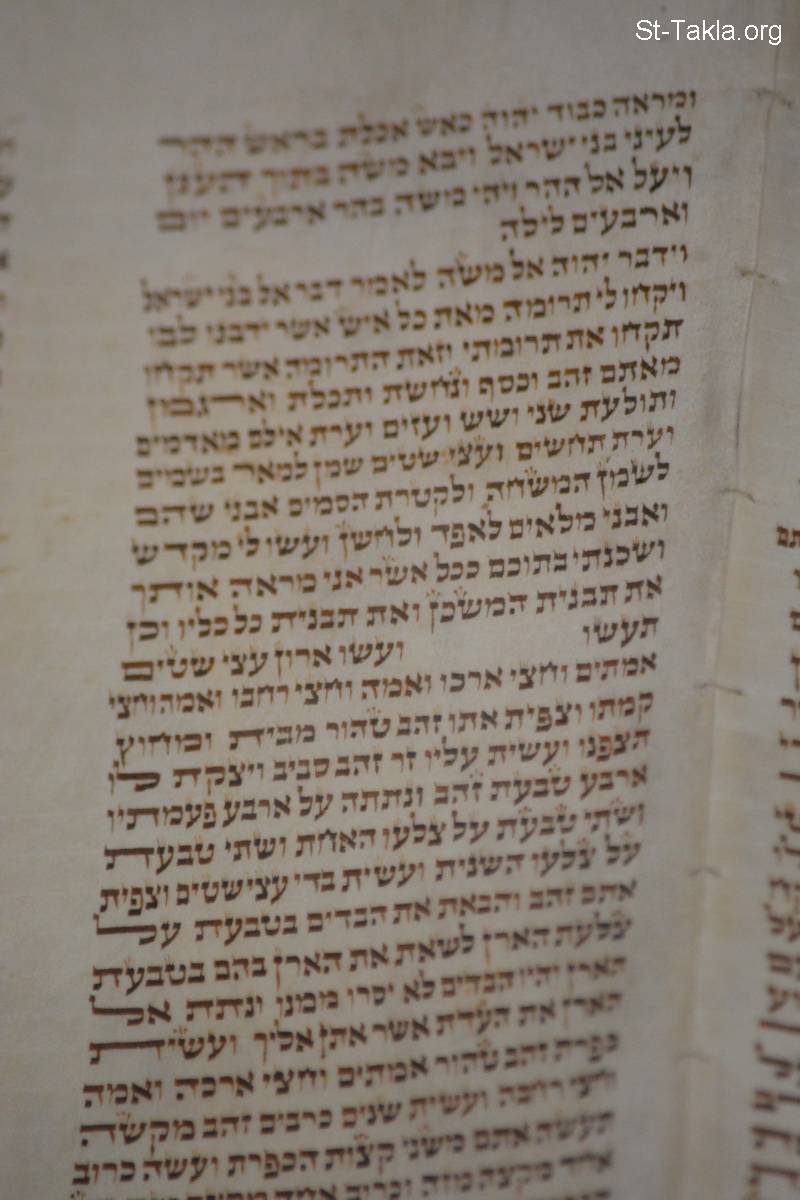 St-Takla.org
ומראה כבוד יהוה כאש אכלת בראש ההר
לעיני בני ישראל ויבא משה בתוך הענן
ויעל אל ההר ויהי משה בהר ארבעים יום
וארבעים לילה
וידבר יהוה אל משה לאמר דבר אל בני ישראל
ויקחו לי תרומה מאת כל איש אשר ידבנו לבו
תקחו את תרומתי וזאת התרומה אשר תקחו
מאתם זהב וכסף ונחשת ותכלת וארגמן
ותולעת שני ושש ועזים וערת אילם מאדמים
וערת תחשים ועצי שטים שמן למאר בשמים
לשמן המשחה ולקטרת הסמים אבני שהם
ואבני מלאים לאפד ולחשן ועשו לי מקדש
ושכנתי בתוכם ככל אשר אני מראה אותך
את תבנית המשכן ואת תבנית כל כליו וכן
תעשו ועשו ארון עצי שטים
אמתים וחצי ארכו ואמה וחצי רחבו ואמה וחצי
קמתו וצפית אתו זהב טהור מבית ומחוץ
תצפנו ועשית עליו זר זהב סביב ויצקת לו
ארבע טבעת זהב ונתתה על ארבע פעמתיו
ושתי טבעת על צלעו האחת ושתי טבעת
על צלעו השנית ועשית בדי עצי שטים וצפית
אתם זהב והבאת את הבדים בטבעת על
צלעת הארן לשאת את הארן בהם בטבעת
הארן יהיו הבדים לא יסרו ממנו ונתת אל
הארן את העדת אשר אתן אליך ועשית
כפרת זהב טהור אמתים וחצי ארכה ואמה
וחצי רחבה ועשית שנים כרבים זהב מקשה
תעשה אתם משני קצות הכפרת ועשה כרוב
אחד מקצה מזה וכרוב אחד מקצה מזה